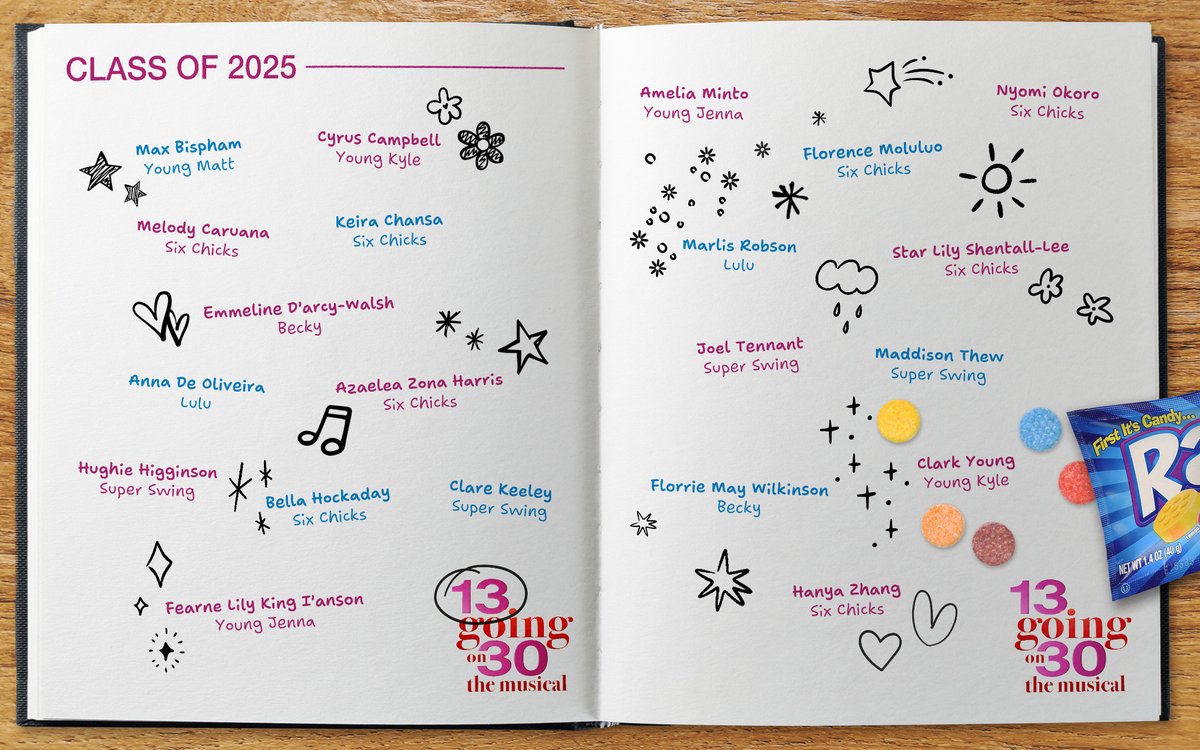 CLASS OF 2025
Max Bispham
Young Matt
Cyrus Campbell
Young Kyle
Melody Caruana
Six Chicks
Keira Chansa
Six Chicks
Emmeline D'arcy-Walsh
Becky
Anna De Oliveira
Lulu
Azaelea Zona Harris
Six Chicks
Hughie Higginson
Super Swing
Bella Hockaday
Six Chicks
Clare Keeley
Super Swing
Fearne Lily King I'anson
Young Jenna
13
going
on 30
the musical
Amelia Minto
Young Jenna
Nyomi Okoro
Six Chicks
Florence Moluluo
Six Chicks
Marlis Robson
Lulu
Star Lily Shentall-Lee
Six Chicks
Joel Tennant
Super Swing
Maddison Thew
Super Swing
First It's Candy...
Clark Young
Young Kyle
Florrie May Wilkinson
Becky
NET WT 1.4 OZ (40 g)
Hanya Zhang
Six Chicks
13
going
on 30
the musical